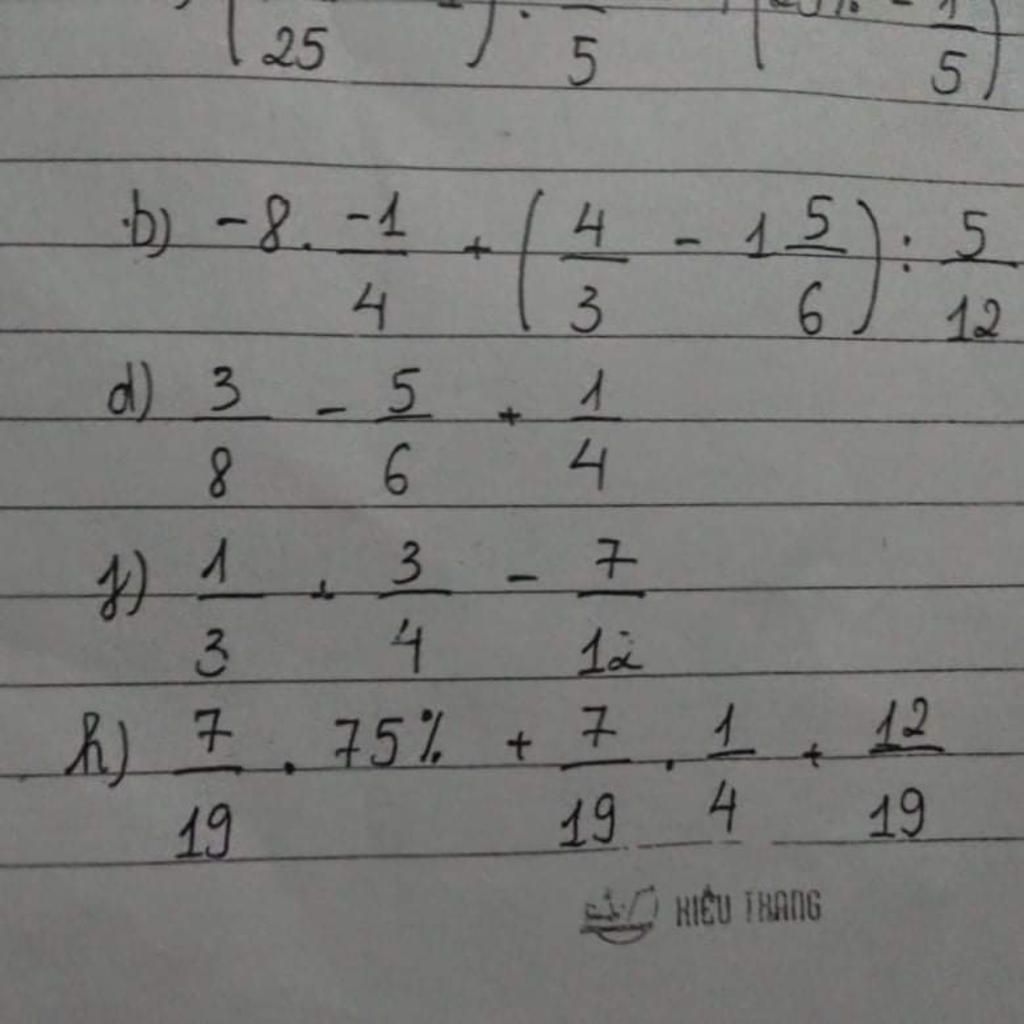 25 5 5
b) -8 . -1/4 + (4/3 - 1 5/6) : 5/12
d) 3/8 - 5/6 + 1/4
f) 1/3 + 3/4 - 7/12
h) 7/19 . 75% + 7/19 . 1/4 + 12/19
KIỀU TRANG